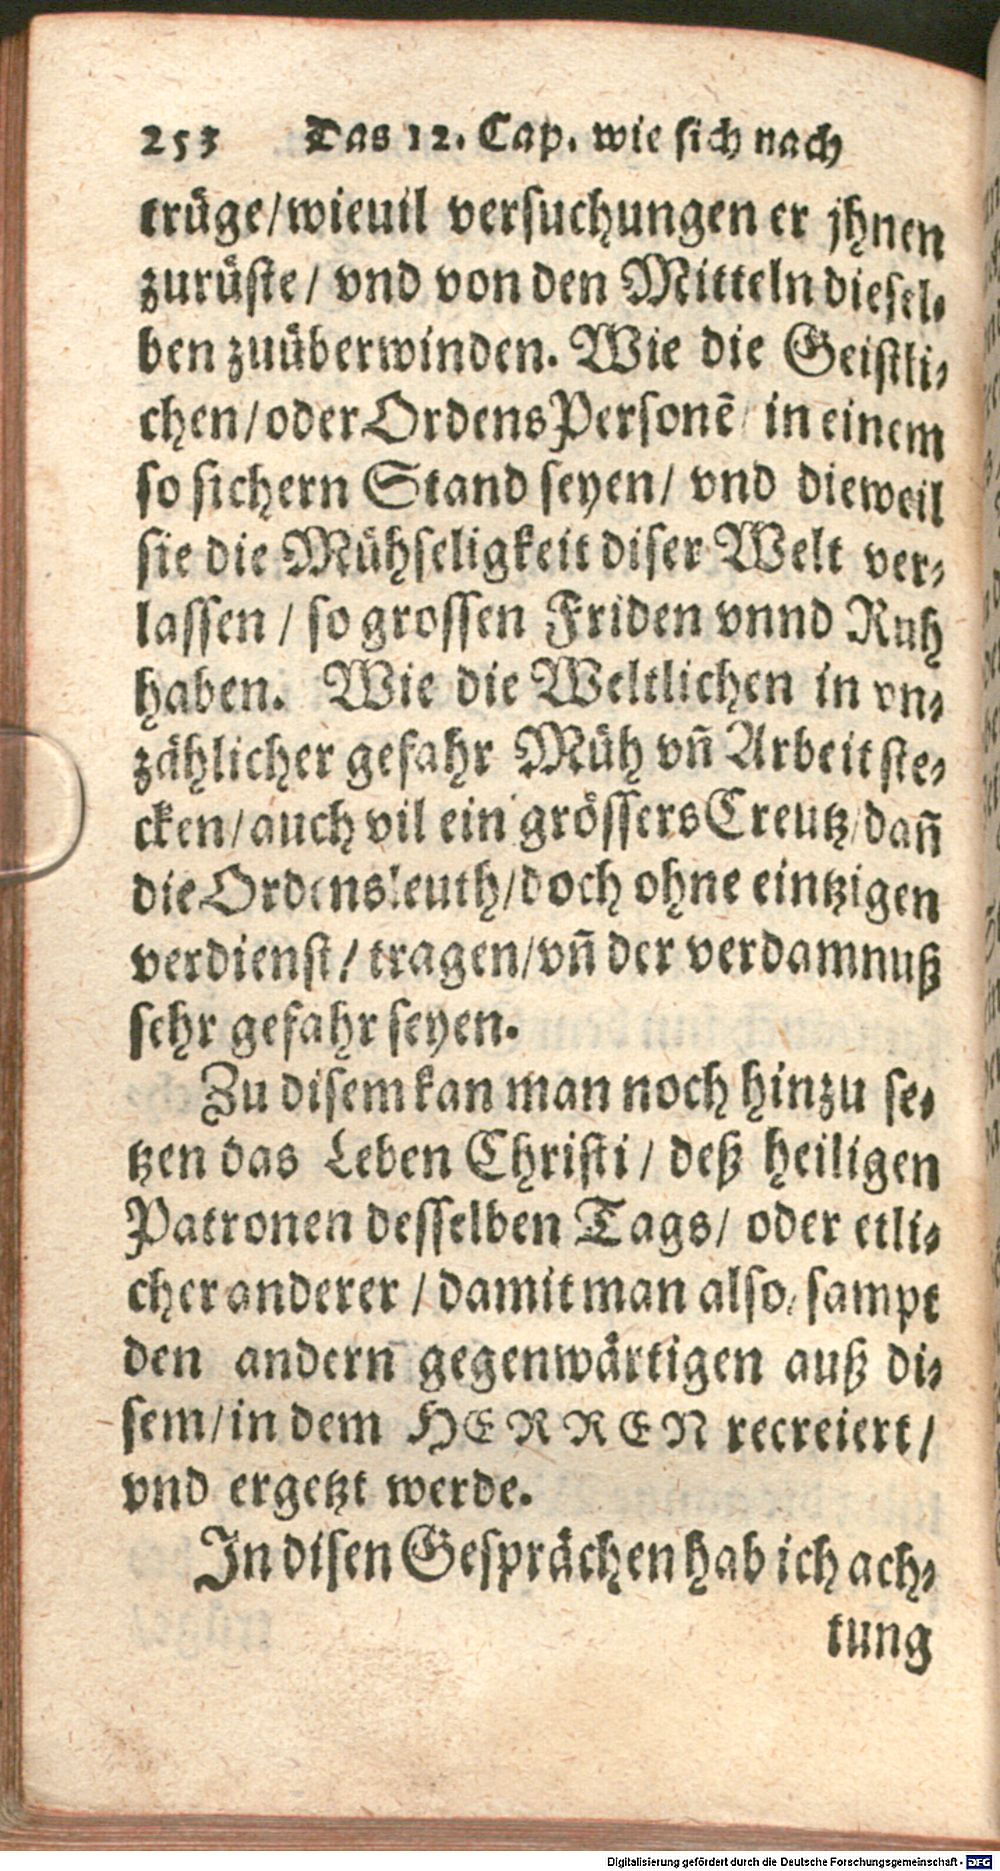 253 Das 12. Cap. wie sich nach
trüge/wieuil versuchungen er jhnen
zurüste/ vnd von den Mitteln diesel-
ben zuüberwinden. Wie die Geistli-
chen/oder OrdensPersonē/ in einem
so sichern Stand seyen/ vnd dieweil
sie die Mühseligkeit diser Welt ver-
lassen / so grossen Friden vnnd Ruh
haben. Wie die Weltlichen in vn-
zählicher gefahr Müh vñ Arbeit ste-
cken/auch vil ein grössers Creutz/dañ
die Ordensleuth/doch ohne eintzigen
verdienst/ tragen/vñ der verdamnuß
sehr gefahr seyen.
Zu disem kan man noch hinzu se-
tzen das Leben Christi/ deß heiligen
Patronen desselben Tags/ oder etli-
cher anderer / damit man also, sampt
den andern gegenwärtigen auß di-
sem/in dem HERREN recreiert/
vnd ergetzt werde.
In disen Gesprächen hab ich ach-
tung
Digitalisierung gefördert durch die Deutsche Forschungsgemeinschaft - DFG